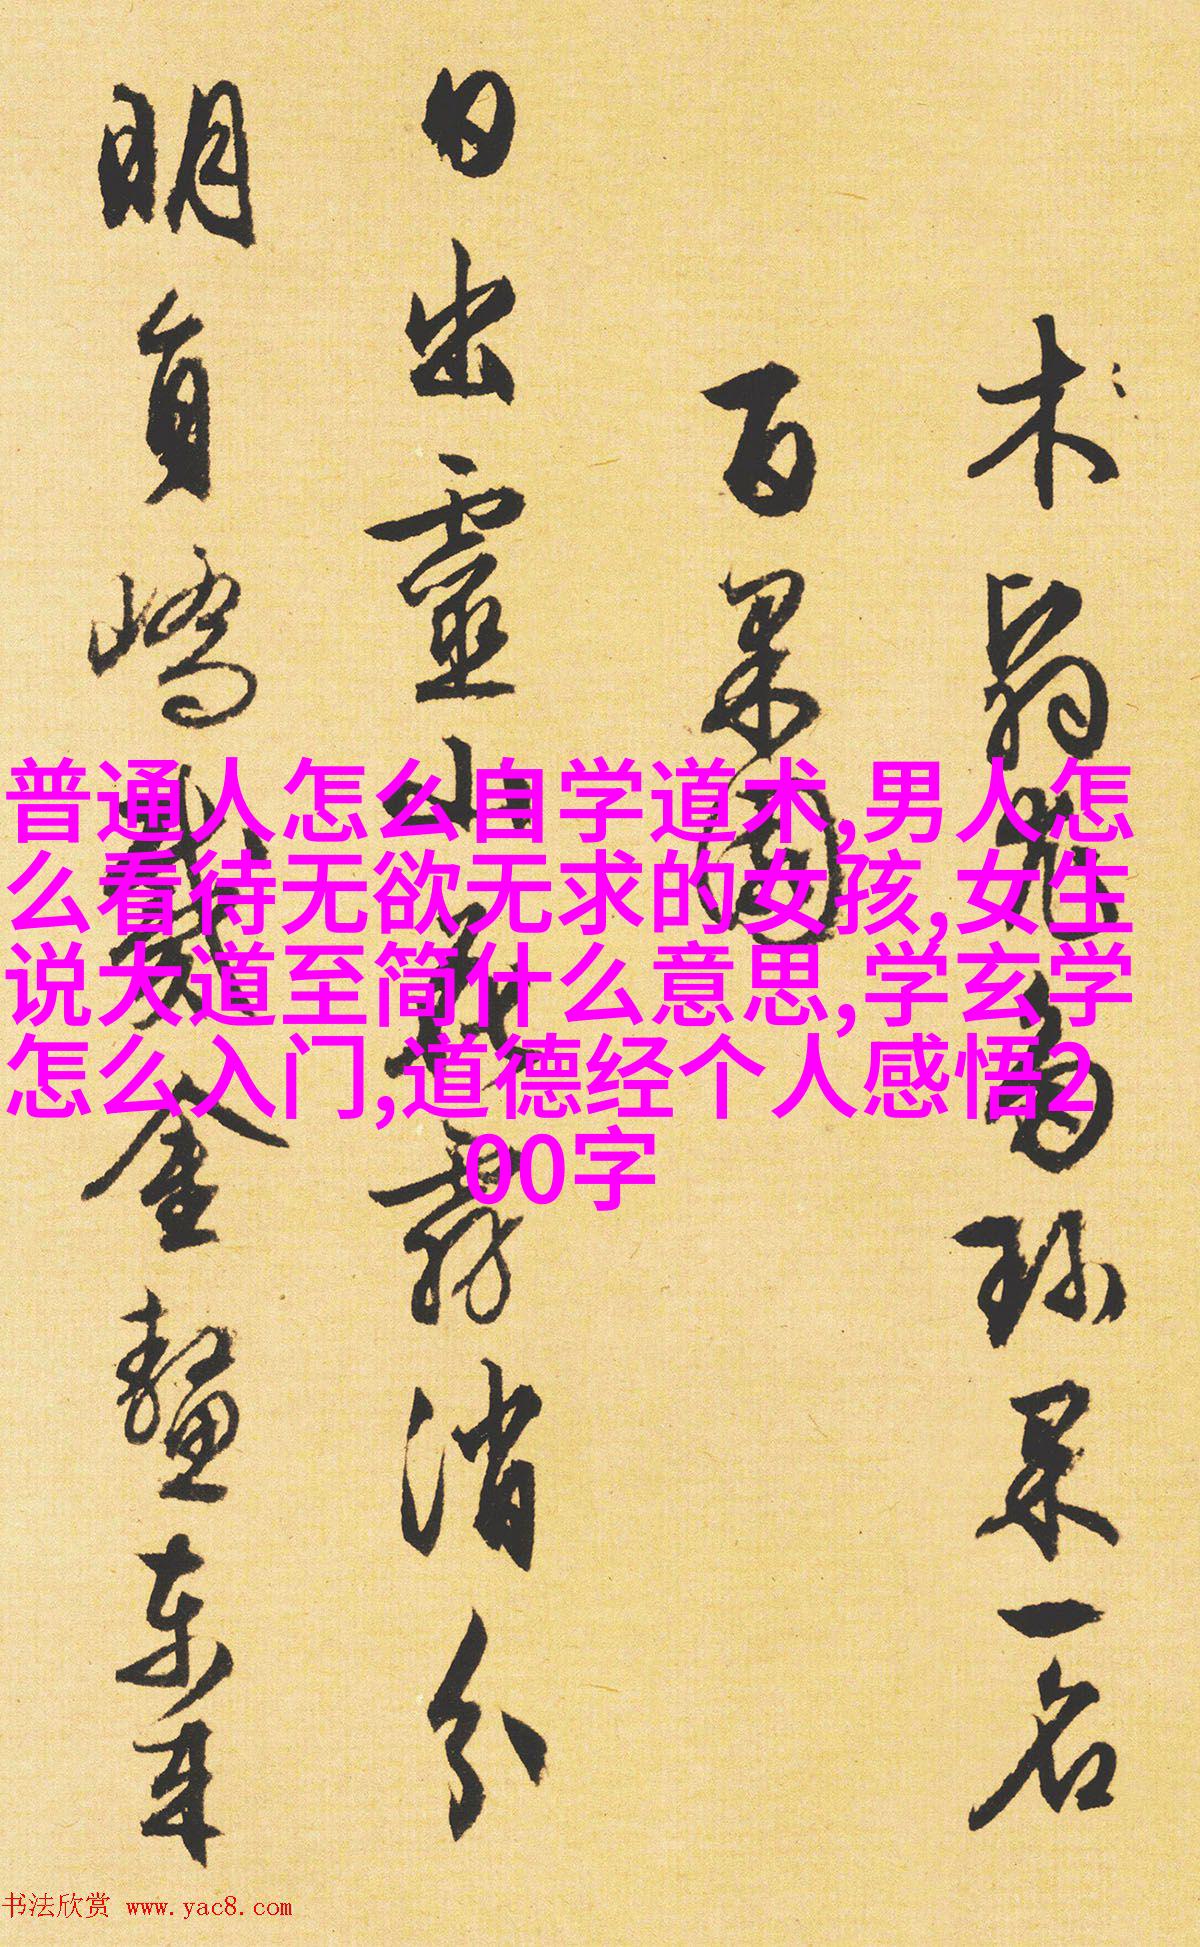 普通人怎么自学道术,男人怎
么看待无欲无求的女孩,女生
说大道至简什么意思,学玄学
怎么入门,道德经个人感悟2
00字
百果園
日出靈山霧消分
明員嶠戴金鼇東来
书法欣赏 www.yac8.com